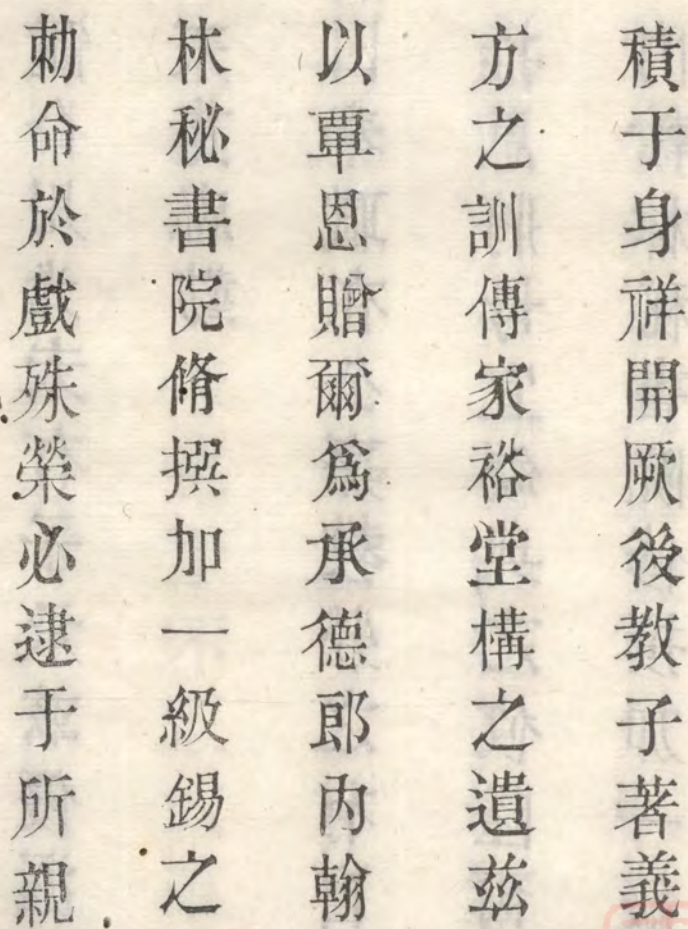 積于身祥開厥後教子著義
方之訓傳家裕堂構之遺茲
以覃恩贈爾爲承德郎內翰
林秘書院脩撰加一級錫之
勅命於戲殊榮必逮于所親